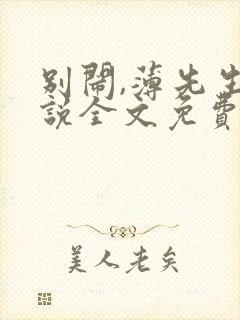 別鬧,薄先生
說全文免費
美人老矣